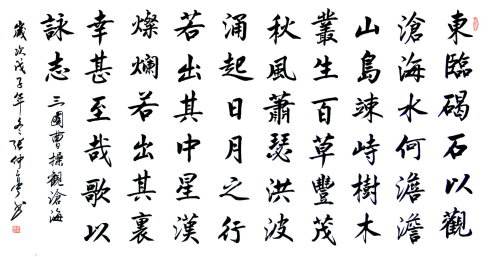 東臨碣石以觀
滄海水何澹澹
山島竦峙樹木
叢生百草豐茂
秋風蕭瑟洪波
涌起日月之行
若出其中星漢
燦爛若出其裏
幸甚至哉歌以
詠志
三國曹操觀滄海
歲次戊子年冬張仲亭书